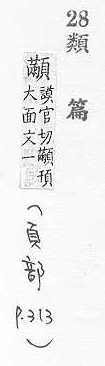 28 類篇
顢
謨官切顢頇
大面文一
(頁部 P.313)